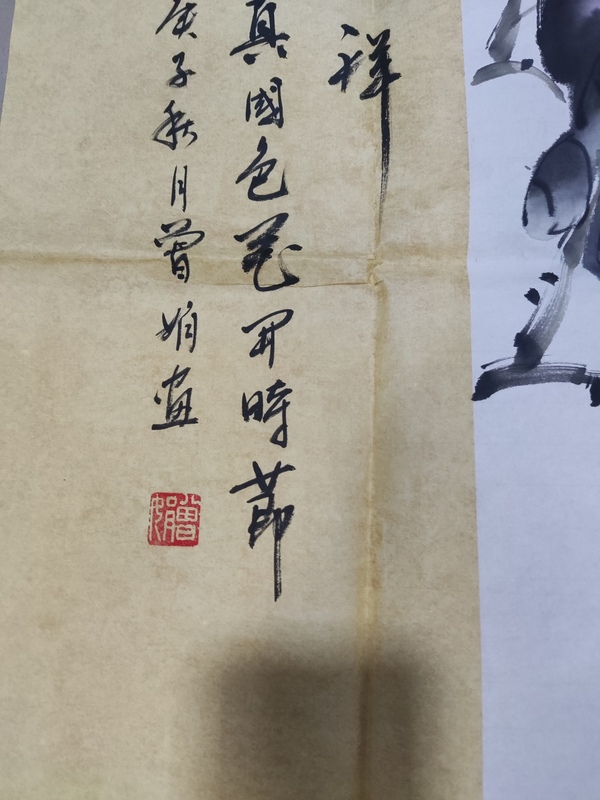 祥
真國色花開時節
庚子秋月曾娟畫
曾娟